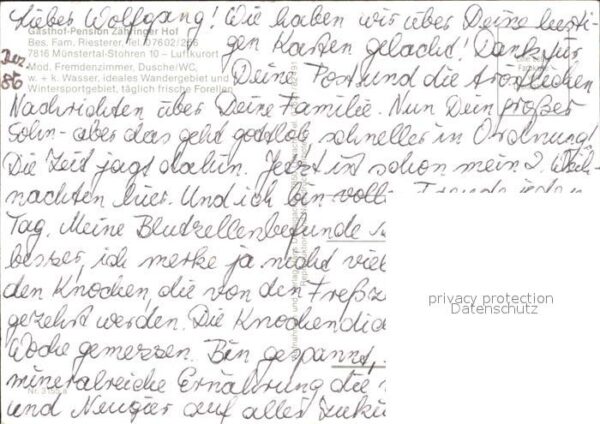 Lieber Wolfgang! Wie haben wir über Deine lusti-
gen Karten gelacht! Dank für
Deine Post und die
Nachrichten über Deine Familie. Nun Dein großer
Sohn - aber das geht gottlob schneller in Ordnung!
Die Zeit jagt dahin. Jetzt ist schon mein 2. Weih-
nachten hier. Und ich bin voller Freude jeden
Tag. Meine Blutzellenbefunde
besser, ich merke ja nicht viel
den Knochen, die von den
gezehrt werden. Die
Woche gemessen. Bin gespannt,
mineralreiche Ernährung die
und Neugier auf alles
Dez.
86
Gasthof-Pension Zähringer Hof
Bes. Fam. Riesterer, Tel. 07602/256
7816 Münstertal-Stohren 10 – Luftkurort
Mod. Fremdenzimmer, Dusche/WC,
w. + k. Wasser, ideales Wandergebiet und
Wintersportgebiet, täglich frische Forellen
privacy protection
Datenschutz